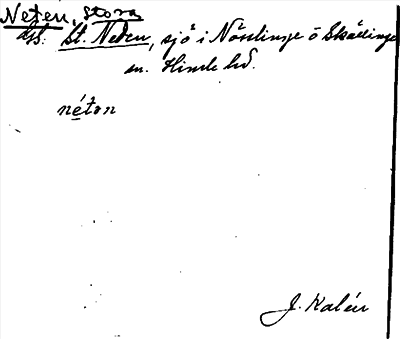 Neten, Stora
St. Neten, sjö i Nösslinge o Skällinge
sn. Himle hd.
néton
J. Kalén